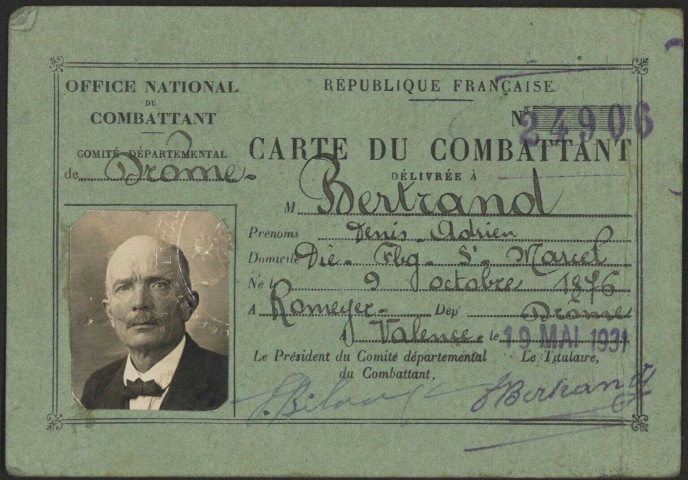 OFFICE NATIONAL
DU
COMBATTANT
COMITÉ DÉPARTEMENTAL
de Drôme
RÉPUBLIQUE FRANÇAISE
N° 24906
CARTE DU COMBATTANT
DÉLIVRÉE À
M Bertrand
Prénoms Denis Adrien
Domicile Die Fbg St Marcel
Né le 9 octobre 1876
A Romeyer Dépt Drôme
A Valence, le 19 MAI 1931
Le Président du Comité départemental
du Combattant,
Le Titulaire,
Bertrand